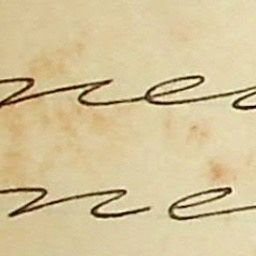 ne
ne